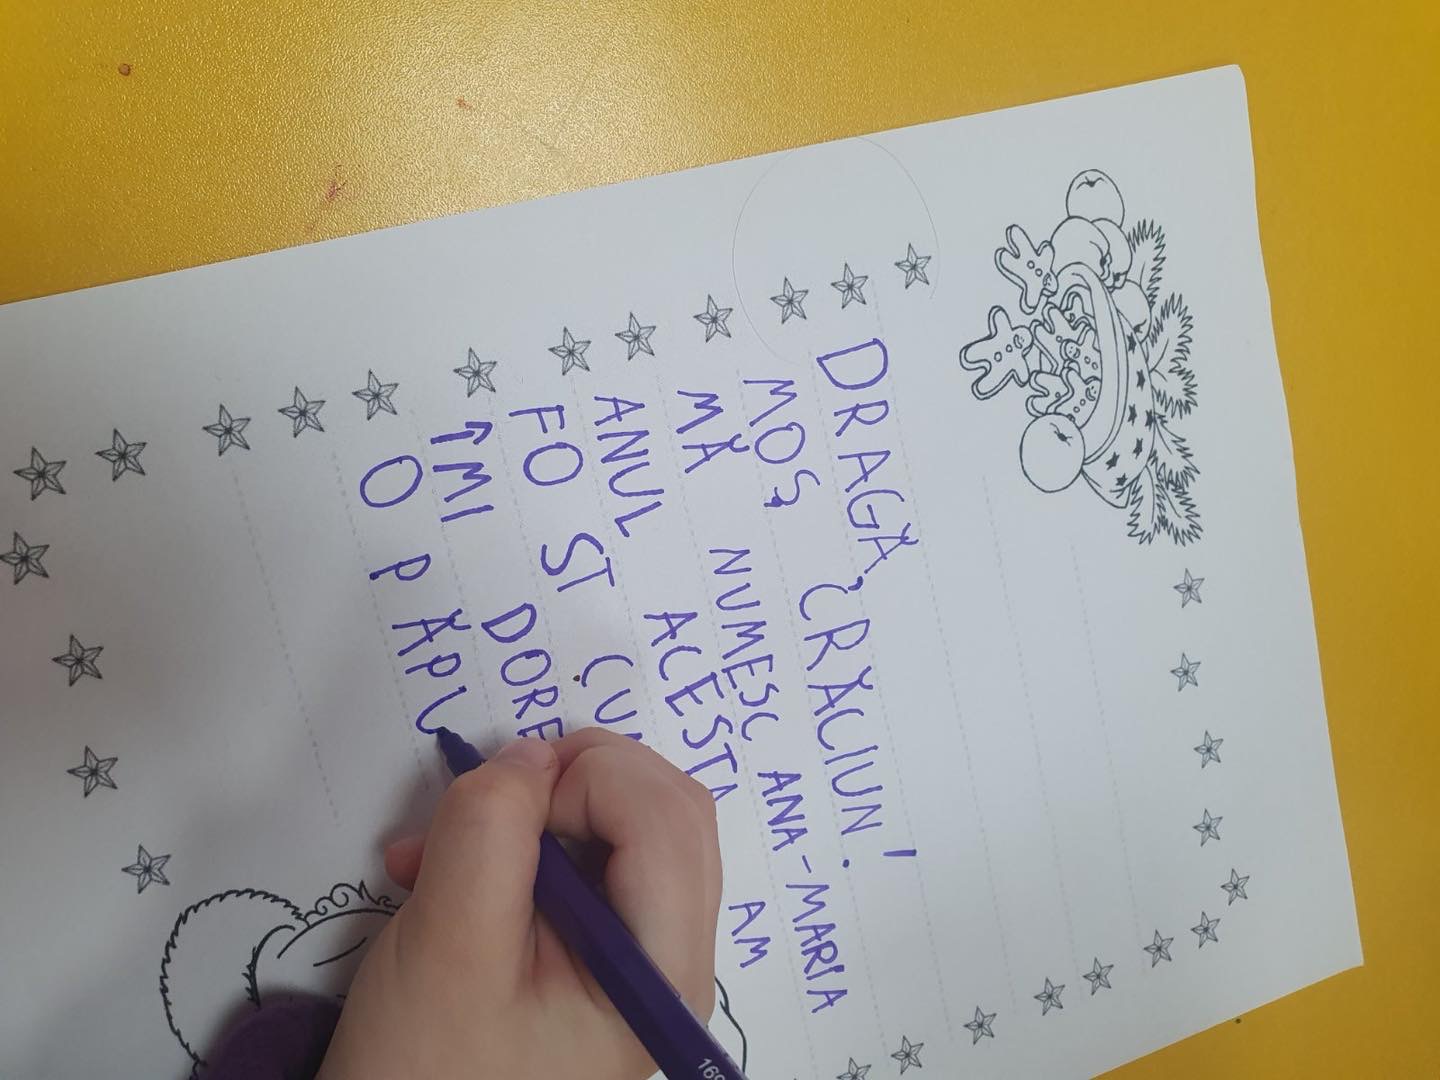 DRAGĂ,
MOȘ CRĂCIUN!
MĂ NUMESC ANA-MARIA.
ANUL ACESTA AM
FO ST
ÎMI DORE
O PĂPU
169